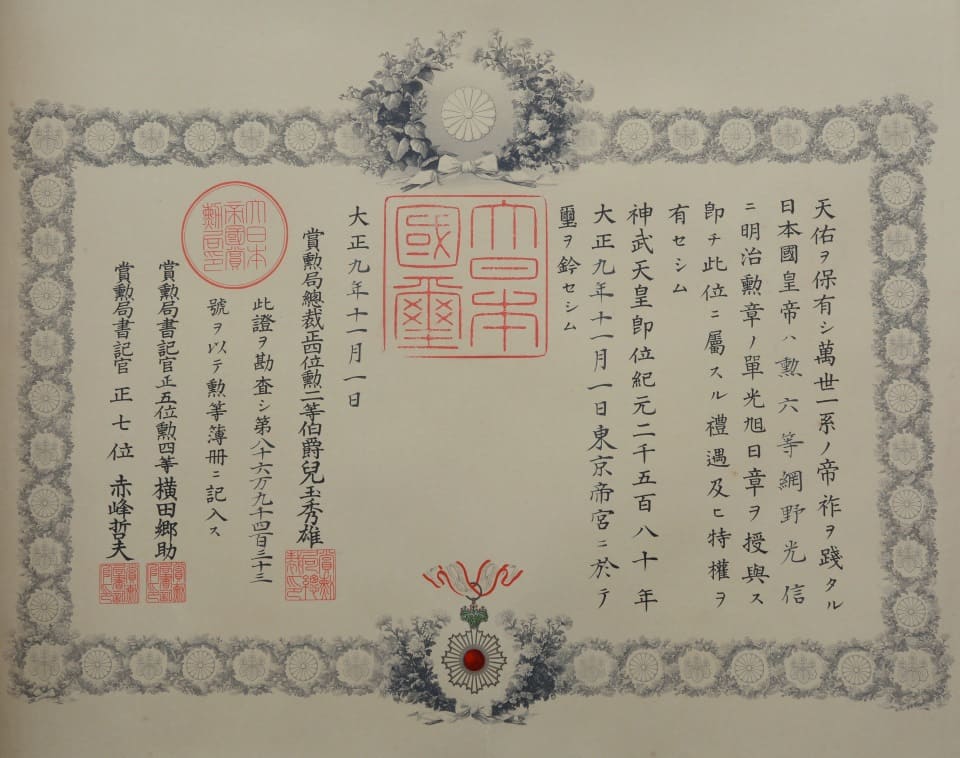 天佑ヲ保有シ萬世一系ノ帝祚ヲ踐タル
日本國皇帝ハ勲六等網野光信
ニ明治勲章ノ單光旭日章ヲ授與ス
即チ此位ニ屬スル禮遇及ヒ特權ヲ
有セシム
神武天皇即位紀元二千五百八十年
大正九年十一月一日東京帝宮ニ於テ
璽ヲ鈐セシム
大日本
國璽
大正九年十一月一日
賞勲局總裁正四位勲二等伯爵兒玉秀雄
此證ヲ勘査シ第八十六万九千四百三十三
號ヲ以テ勲等簿册ニ記入ス
大日本
帝國賞
勲局印
賞勲局書記官正五位勲四等横田郷助
賞勲局書記官正七位赤峰哲夫